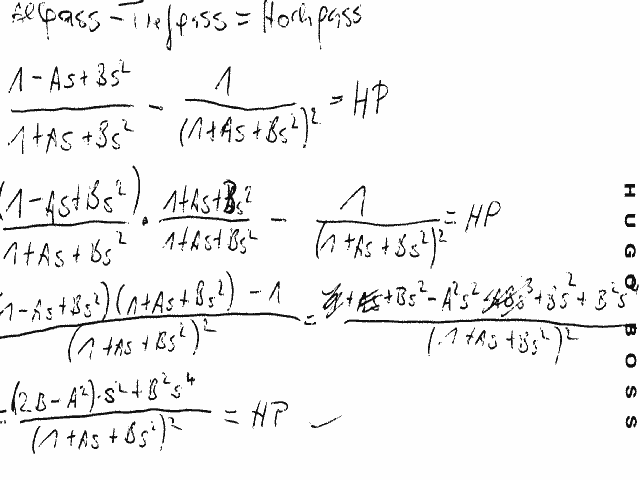 Allpass – Tiefpass = Hochpass
(1 - As + Bs²)/(1 + As + Bs²) - 1/(1 + As + Bs²)² = HP
(1 - As + Bs²)/(1 + As + Bs²) · (1 + As + Bs²)/(1 + As + Bs²) - 1/(1 + As + Bs²)² = HP
(1 - As + Bs²)(1 + As + Bs²) - 1/(1 + As + Bs²)² = + Bs² - A²s² + Bs² + B²s⁴/(1 + As + Bs²)²
= (2B - A²)·s² + B²s⁴/(1 + As + Bs²)² = HP ✓
HUGO BOSS